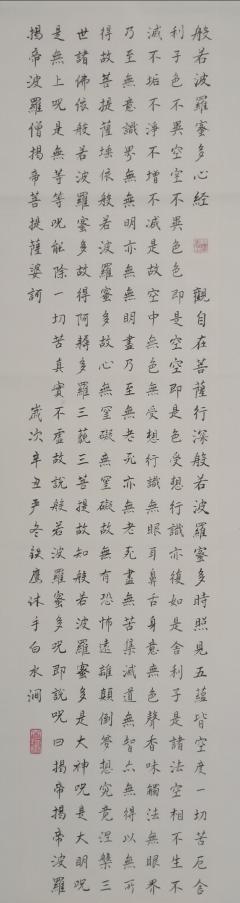 般若波羅蜜多心經 觀自在菩薩行深般若波羅蜜多時照見五蘊皆空度一切苦厄舍
利子色不異空空不異色色即是空空即是色受想行識亦復如是舍利子是諸法空相不生不
滅不垢不淨不增不減是故空中無色無受想行識無眼耳鼻舌身意無色聲香味觸法無眼界
乃至無意識界無無明亦無無明盡乃至無老死亦無老死盡無苦集滅道無智亦無得以無所
得故菩提薩埵依般若波羅蜜多故心無罣礙無罣礙故無有恐怖遠離顛倒夢想究竟涅槃三
世諸佛依般若波羅蜜多故得阿耨多羅三藐三菩提故知般若波羅蜜多是大神呪是大明呪
是無上呪是無等等呪能除一切苦真實不虛故說般若波羅蜜多呪即說呪曰揭帝揭帝波羅
揭帝波羅僧揭帝菩提薩婆訶 歲次辛丑严冬鉄鷹沐手白水澗